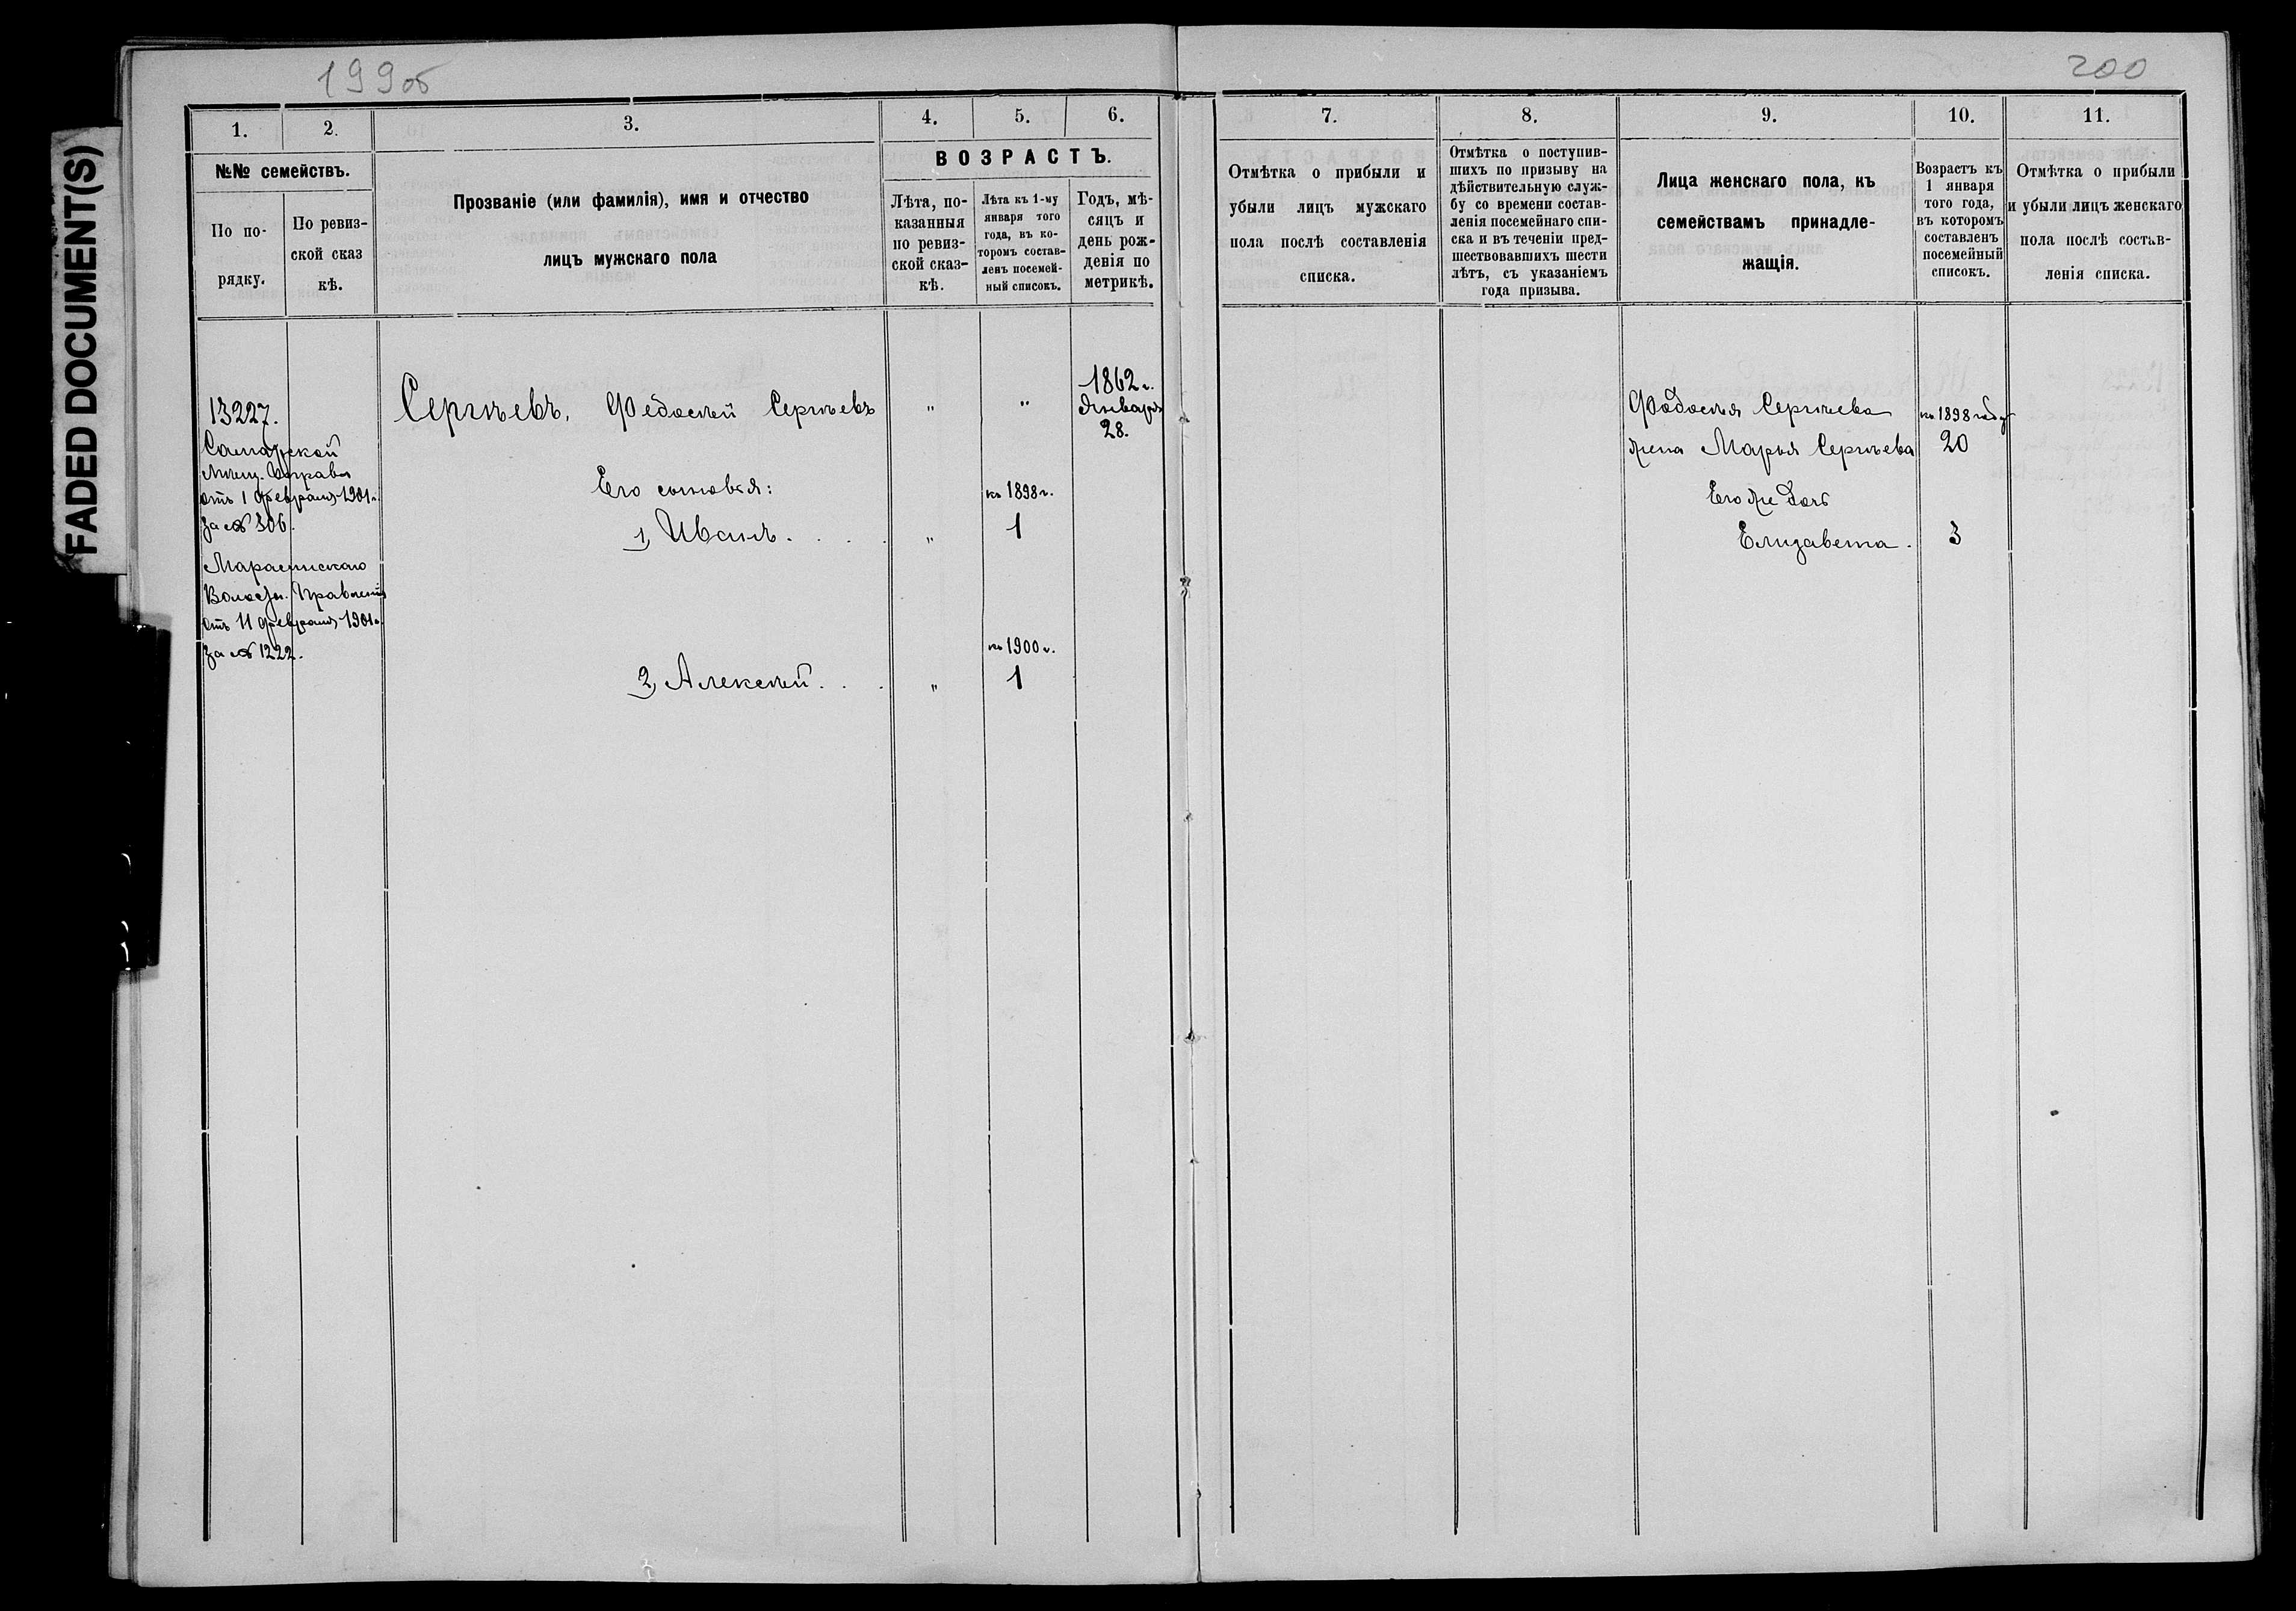 199об
200
FADED DOCUMENT(S)
1.
2.
3.
4.
5.
6.
№№ семействъ.
По по-
рядку.
По ревиз-
ской сказ
кѣ.
Прозваніе (или фамилія), имя и отчество
лицъ мужскаго пола
ВОЗРАСТЪ.
Лѣта, по-
казанныя
по ревиз-
ской сказ-
кѣ.
Лѣта къ 1-му
января того
года, въ ко-
торомъ состав-
ленъ посемей-
ный списокъ.
Годъ, мѣ-
сяцъ и
день рож-
денія по
метрикѣ.
7.
8.
9.
10.
11.
Отмѣтка о прибыли и
убыли лицъ мужскаго
пола послѣ составленія
списка.
Отмѣтка о поступив-
шихъ по призыву на
дѣйствительную служ-
бу со времени состав-
ленія посемейнаго спи-
ска и въ теченіи пред-
шествовавшихъ шести
лѣтъ, съ указаніемъ
года призыва.
Лица женскаго пола, къ
семействамъ принадле-
жащія.
Возрастъ къ
1 января
того года,
въ которомъ
составленъ
посемейный
списокъ.
Отмѣтка о прибыли
и убыли лицъ женскаго
пола послѣ состав-
ленія списка.
13227.
Самарской
Мѣщ. Управы
отъ 1 февраля 1901 г.
за № 306.
Волостн. Правленія
отъ 11 февраля 1901 г.
за № 1222.
Сергѣевъ, Федосѣй Сергѣевъ " "
1862 г.
Января
28.
Его сыновья:
къ 1898 г.
1, Иванъ . . . . " 1
къ 1900 г.
2, Алексѣй . . . " 1
Федосѣя Сергѣева къ 1898 году
жена Марья Сергѣева 20
Его же дочь
Елизавета . 3